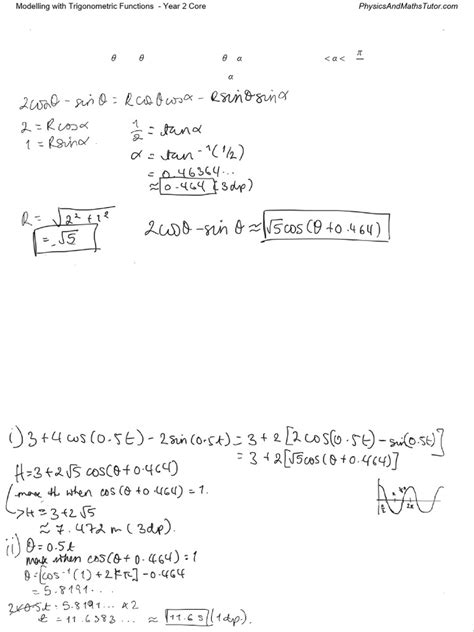 Modelling with Trigonometric Functions - Year 2 Core
PhysicsAndMathsTutor.com
θ θ θ α < α < π
α
2cosθ - sinθ = Rcosθcosα - Rsinθsinα
2 = Rcosα
1 = Rsinα
1/2 = tanα
α = tan⁻¹(1/2)
= 0.46364...
≈ 0.464 (3dp)
R = √2² + 1²
= √5
2cosθ - sinθ ≈ √5cos(θ + 0.464)
i) 3 + 4cos(0.5t) - 2sin(0.5t) = 3 + 2[2cos(0.5t) - sin(0.5t)]
= 3 + 2[√5cos(θ + 0.464)]
H = 3 + 2√5 cos(θ + 0.464)
max H when cos(θ + 0.464) = 1.
→ H = 3 + 2√5
≈ 7.472 m (3dp).
ii) θ = 0.5t
max when cos(θ + 0.464) = 1
θ = [cos⁻¹(1) + 2π] - 0.464
= 5.8191...
t = 5.8191... × 2
t = 11.6383... ≈ 11.63 (1dp).
π
2π